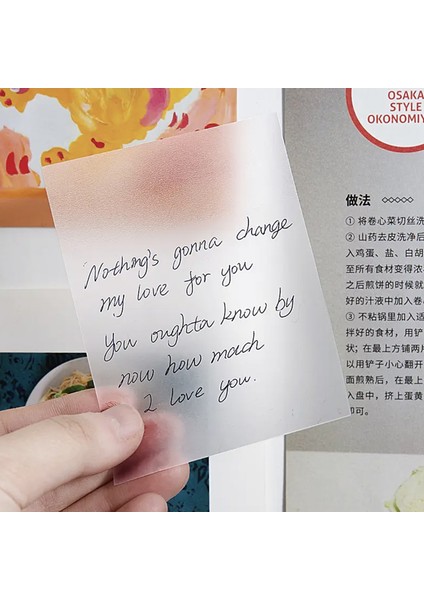 Nothing's gonna change
my love for you
You oughta know by
now how much
I love you.
OSAKA
STYLE
OKONOMIY
做法
① 将卷心菜切丝洗
② 山药去皮洗净后
入鸡蛋、盐、白胡
至所有食材变得浓
之后煎饼的时候就
好的汁液中加入卷
③ 不粘锅里加入适
拌好的食材，用铲
状；在最上方铺两片
以用铲子小心翻开
面煎熟后，在最上
入盘中，挤上蛋黄
即可。